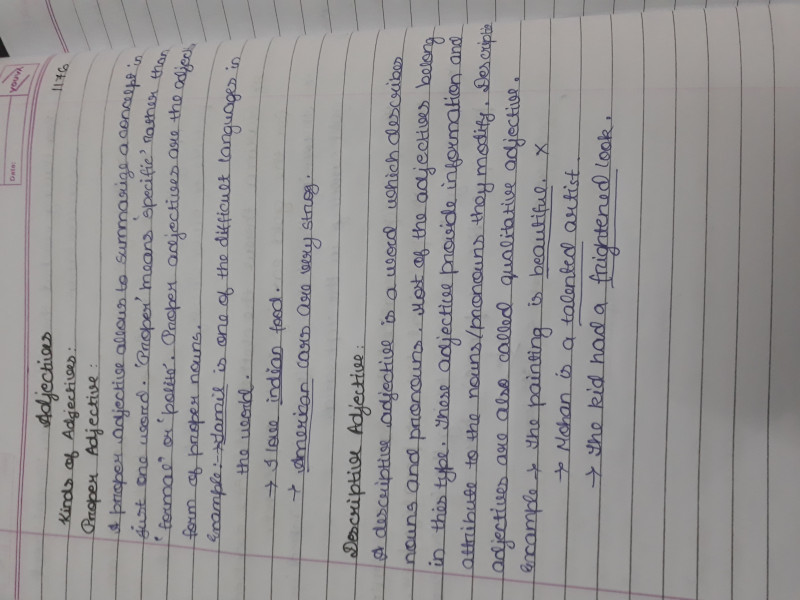 Date:
YOUVA
Adjectives
1176
Kinds of Adjectives:
Proper Adjective:
A proper adjective allows to summarize a concept in
just one word. 'Proper' means 'specific' rather than
'formal' or 'polite'. Proper adjectives are the adjecti
form of proper nouns.
Example:→ Tamil is one of the difficult languages in
the world.
→ I love indian food.
→ American cars are very strog.
Descriptive Adjective:
A descriptive adjective is a word which describes
nouns and pronouns. Most of the adjectives belong
in this type. These adjective provide information and
attribute to the nouns/pronouns they modify. Descripte
adjectives are also called qualitative adjective.
Example → The painting is beautiful. x
→ Mohan is a talented artist.
→ The kid had a frightened look.